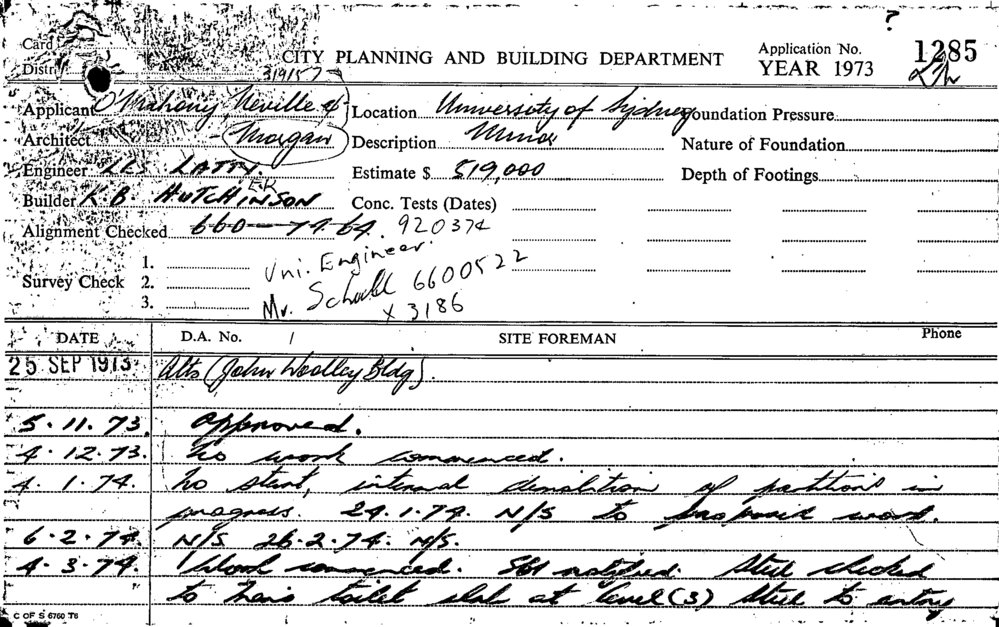 ?
Card
CITY PLANNING AND BUILDING DEPARTMENT
Application No. 1285
Distr
YEAR 1973
Applicant O'Mahony, Neville &
Location University of Sydney
Foundation Pressure
Architect Morgan
Description Minor
Nature of Foundation
Engineer LATTY
Estimate $ 519,000
Depth of Footings
Builder K.B. HUTCHINSON
Conc. Tests (Dates)
Alignment Checked 660-79-69. 920374
Uni. Engineer.
Survey Check 1.
2.
3.
Mr. 6600522
x 3186
DATE D.A. No. / SITE FOREMAN Phone
25 SEP 1973 Alts (John Woolley Bldg).
5.11.73. Approved.
4.12.73. No work commenced.
4.1.74. No start, internal demolition of partitions in
progress. 24.1.74. N/S to proposed work.
6.2.74. N/S 26.2.74. N/S.
4.3.74. Work commenced. notified. Steel checked
to toilet slab at level (3) Steel to entry
C OF S 6760 T6